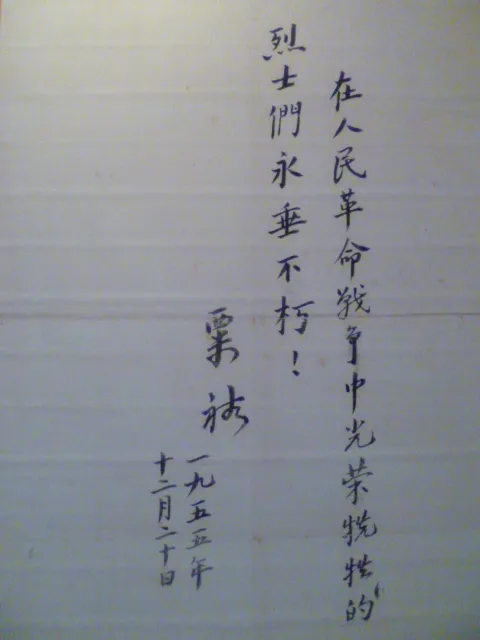 在人民革命战争中光荣牺牲的
烈士們永垂不朽！
粟裕
一九五五年
十二月二十日